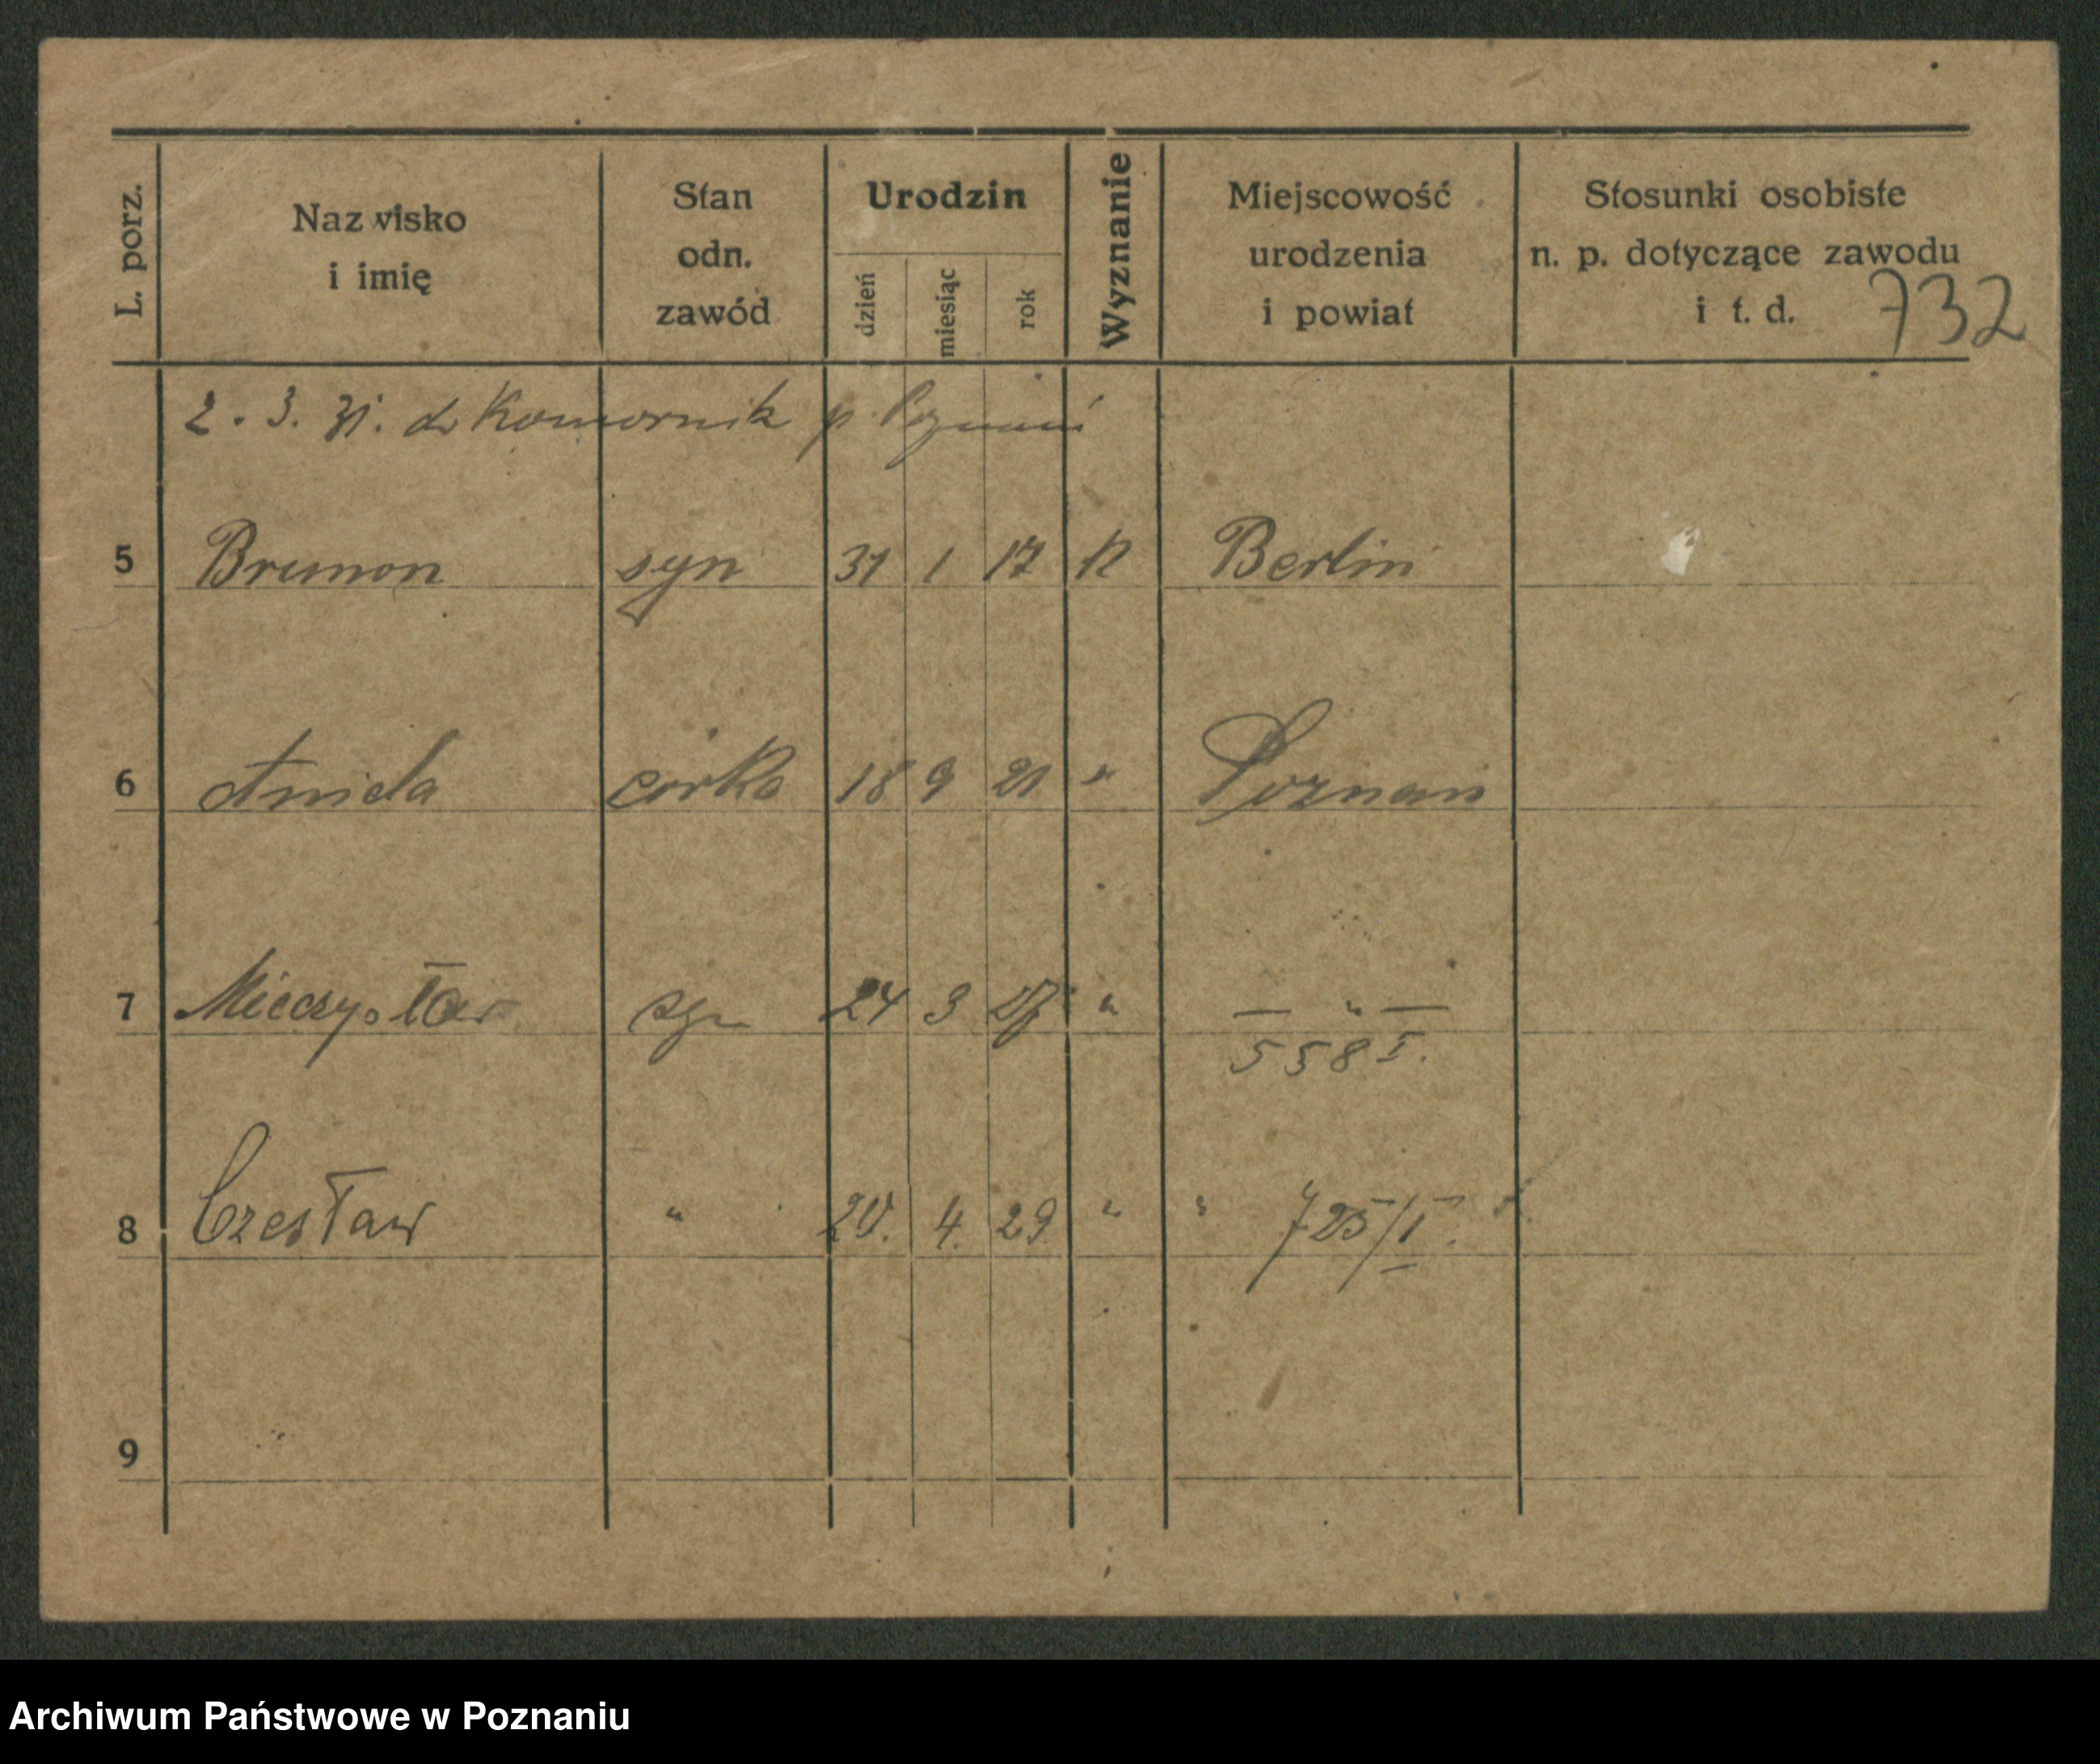 L. porz. Nazwisko i imię Stan odn. zawód Urodzin dzień miesiąc rok Wyznanie Miejscowość urodzenia i powiat Stosunki osobiste n. p. dotyczące zawodu i t. d.
732
2. 3. 31. do Komornik p. Poznań
5 Brunon syn 31 1 17 K Berlin
6 Aniela córka 18 9 21 " Poznań
7 Mieczysław syn 24 3 27 " — " —
558 I.
8 Czesław " 20. 4. 29 " " 725/I.
9
Archiwum Państwowe w Poznaniu